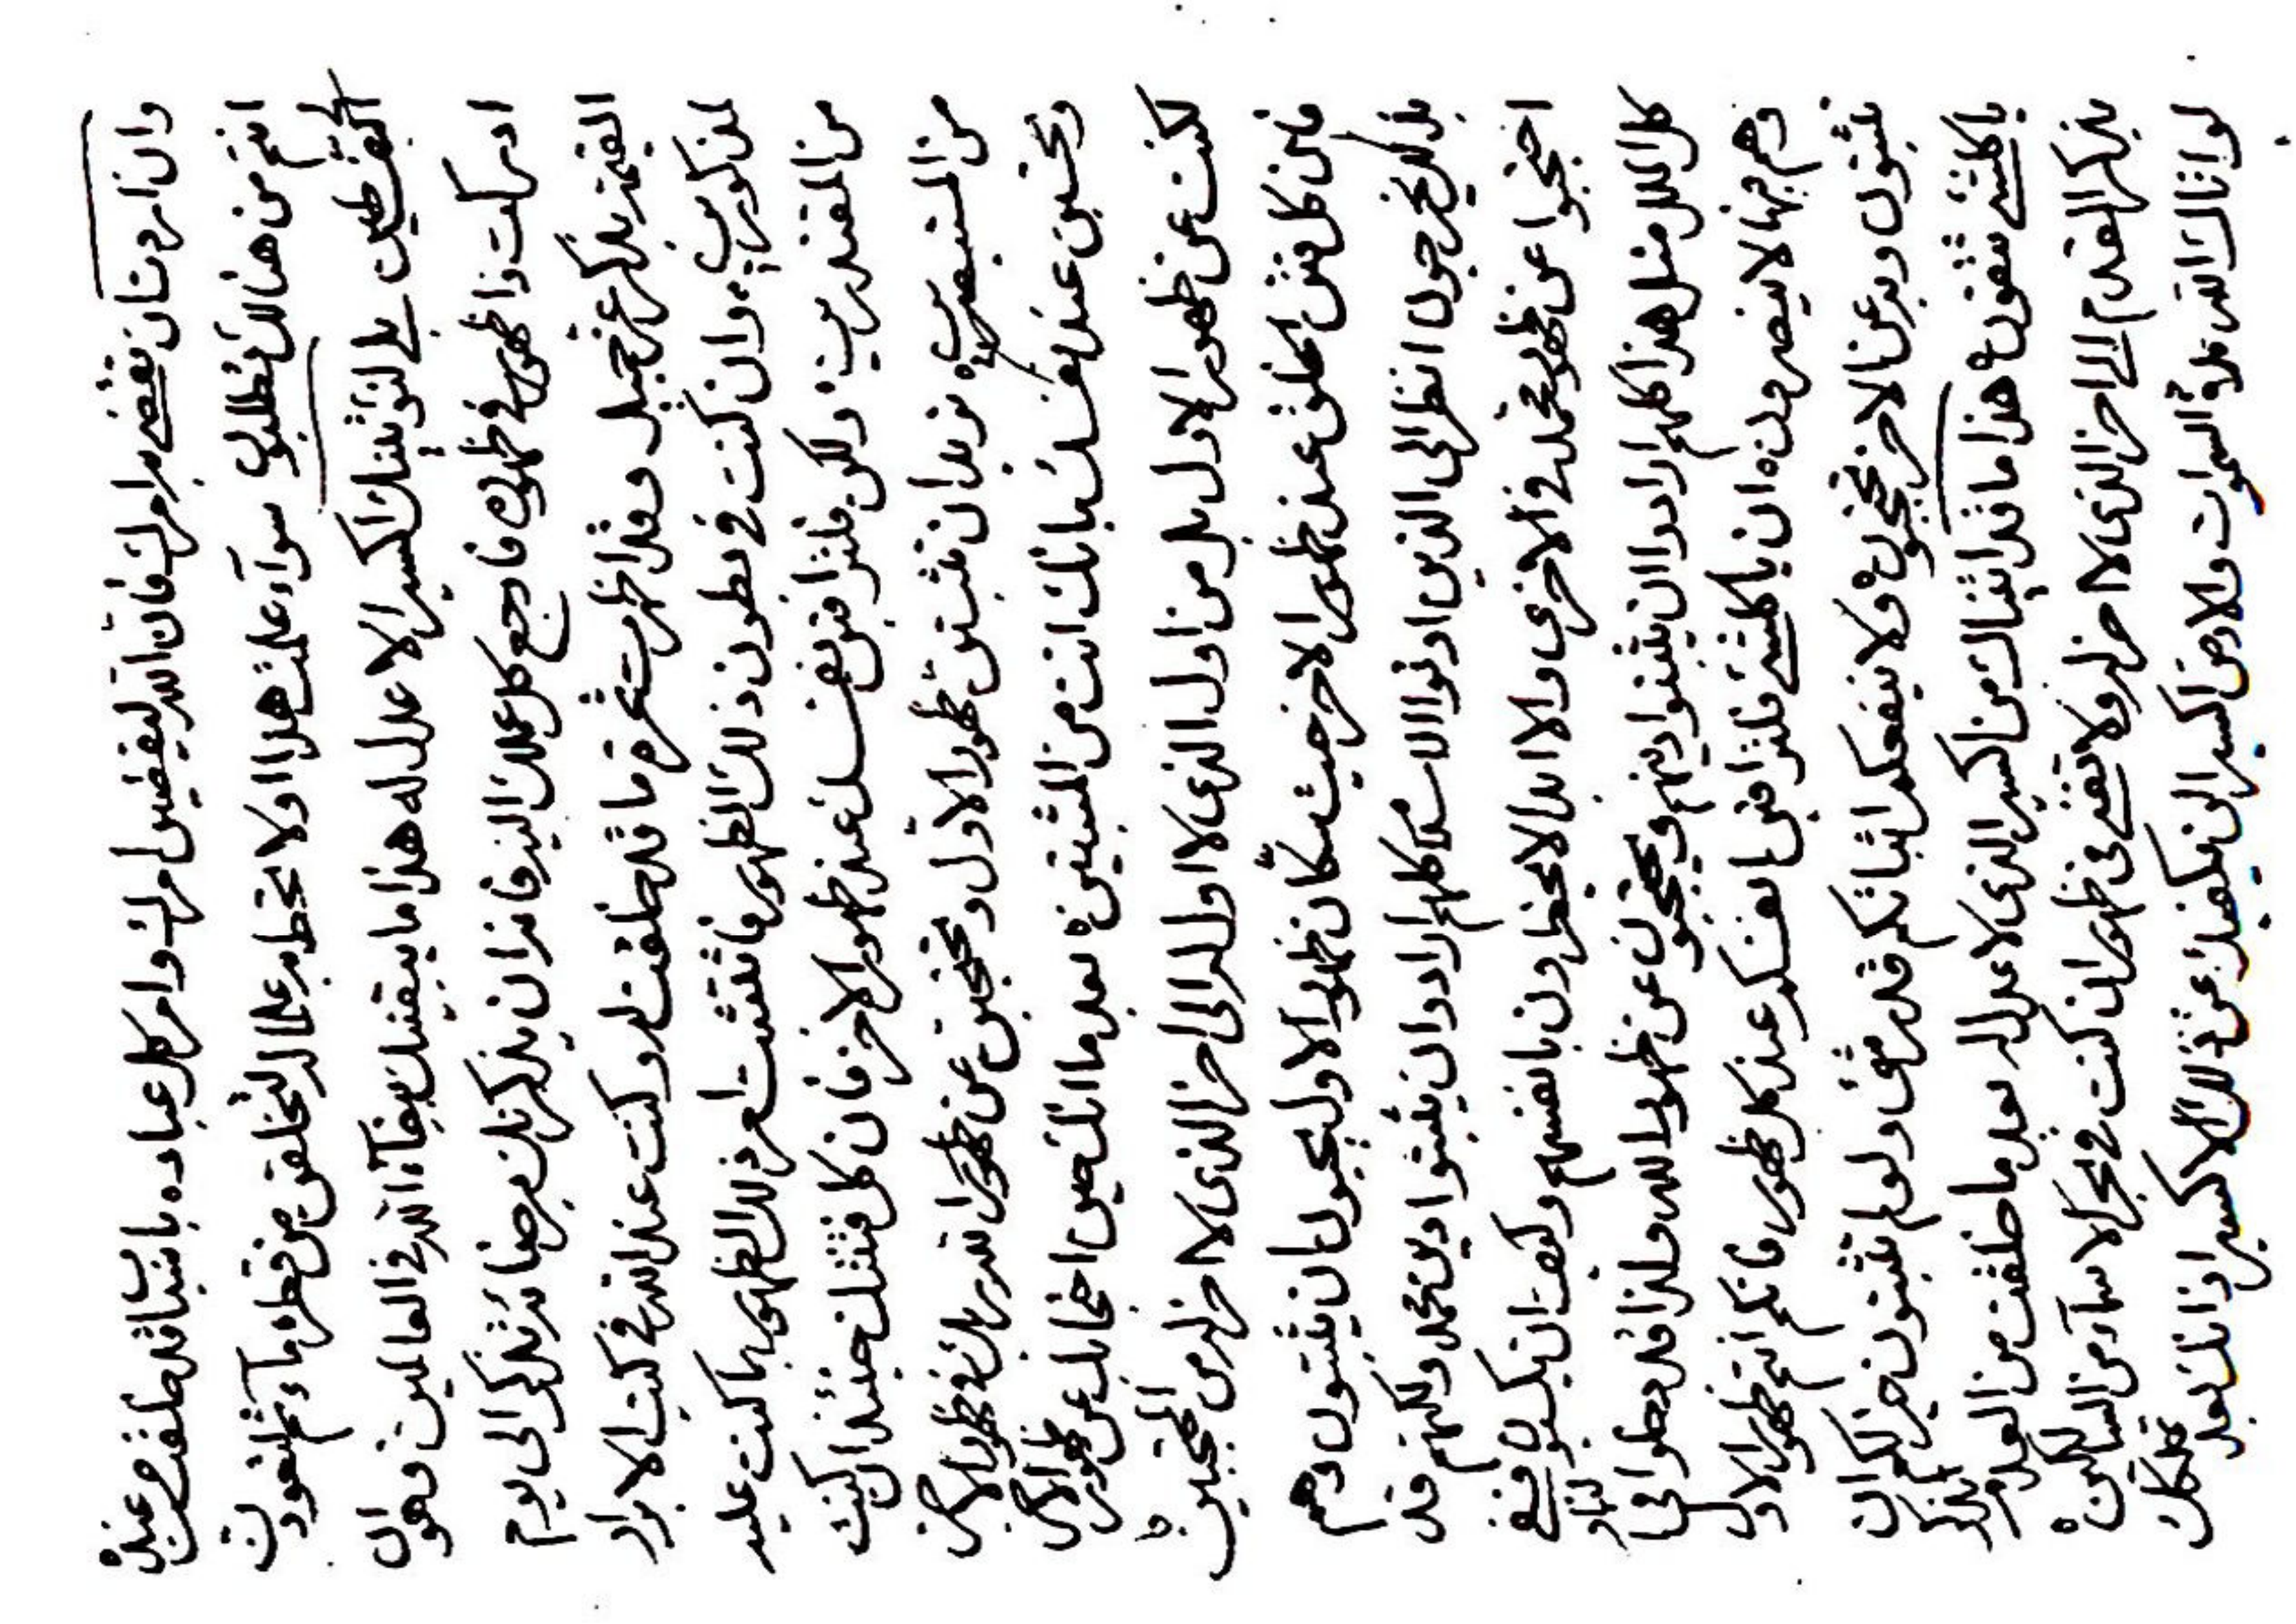 وان اردت ان تقضي بامر الله فان الله ليقضين امر الله وامر كل عباده باسباب قد خلقت من عنده
انتم من هنالك تطلبون سواء علمت هذا او لا تحط به علما لتخلقن من قطرة ماء ثم لتعودن
الى قبر طين بلى لنؤتينك اكسير الاعدل له هذا ما يبقينك ببقاء الله في العالمين فهو ان
ادركت ذا ظهور في ظهوره فارجع كل عملك اليه فاذا ان يذكرنك برضائه تذكر الى يوم
القيمة بذكر عز جميل وقد اظهرت ثمرة ما قد خلقت له وكنت عند الله في كتب الابرار
لمن كورين وان كنت في بطون ذلك الظهور فاثبت امر ذلك الظهور بما كنت عليه
من المقتدرين ولكن فلتراقبن نفسك عند ظهور الاخر فان كل فتنتك حينئذ ان كنت
من المستبصرين تريد ان تثبتن ظهور الاول وتحتجبن عن ظهور الله ربك في ظهور الاخر
وتحسبن عند نفسك بانك انت من المثبتين بعد ما انك حين احتجابك عن ظهور الاخر
لكنت عن ظهور الاول بل من اول الذي لا اول له الى اخر الذي لا اخر له من المحتجبين
فاين كل فتن الخلق عند ظهور الاخر حيث سكان ظهور الاول يحبون ان يثبتون وهم
بذلك يخرجون انظر الى الذين اوتوا الاسلام كلهم ارادوا ان يثبتوا دين محمد ولكنهم قد
احتجبوا عن ظهور محمد في الاخرى والا ابدا لا يخطرون بانفسهم وكيف ان يكسبون في
كل الملل مثل هذا كلهم ارادوا ان يثبتوا دينهم ويحتجبون عن ظهور الله ولذا قد دخلوا في النار
وهم فيها لا ينصرون ان يا كلشئ فلتراقبن انفسكم عند كل ظهور فانكم انتم ظهور الاول
تثبتون وبه عن الاخر تحتجبون ولا ينفعكم اثباتكم قدر شئ ولو لم تثبتون خير لكم ان
يا كلشئ تتقون هذا ما قد اتيناك من اكسير الذي لا عدل له بعد ما خلقت من العدم لتذكر
بذكر القدم الى اخر الذي لا اخر له ولا تقضي في ظهور ان كنت في بحر الاسماء من السالكين
لو اتاك الله ملك السموات والارض اكسيرا لن يكفيك عن ذلك الاكسير اذ انك بعد ملكك